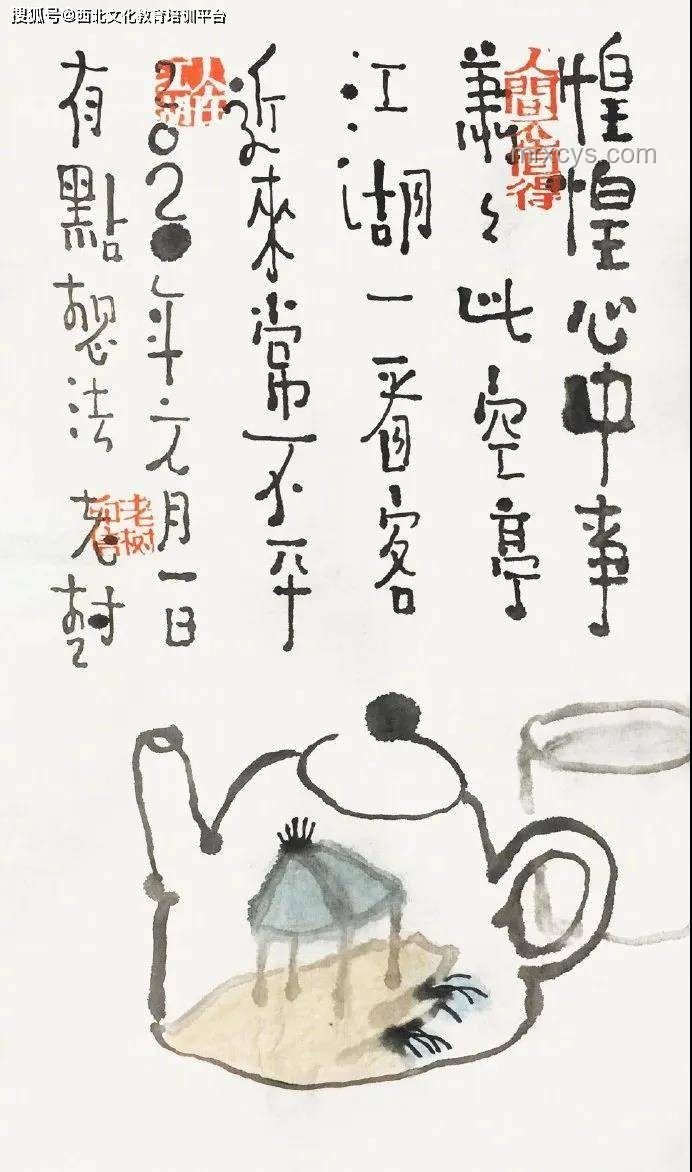 搜狐号@西北文化教育培训平台
mxcys.com
惶惶心中事
蕭々此空亭
江湖一看客
近來常不平
202●年元月一日
有點想法 老樹
人間不值得
老树